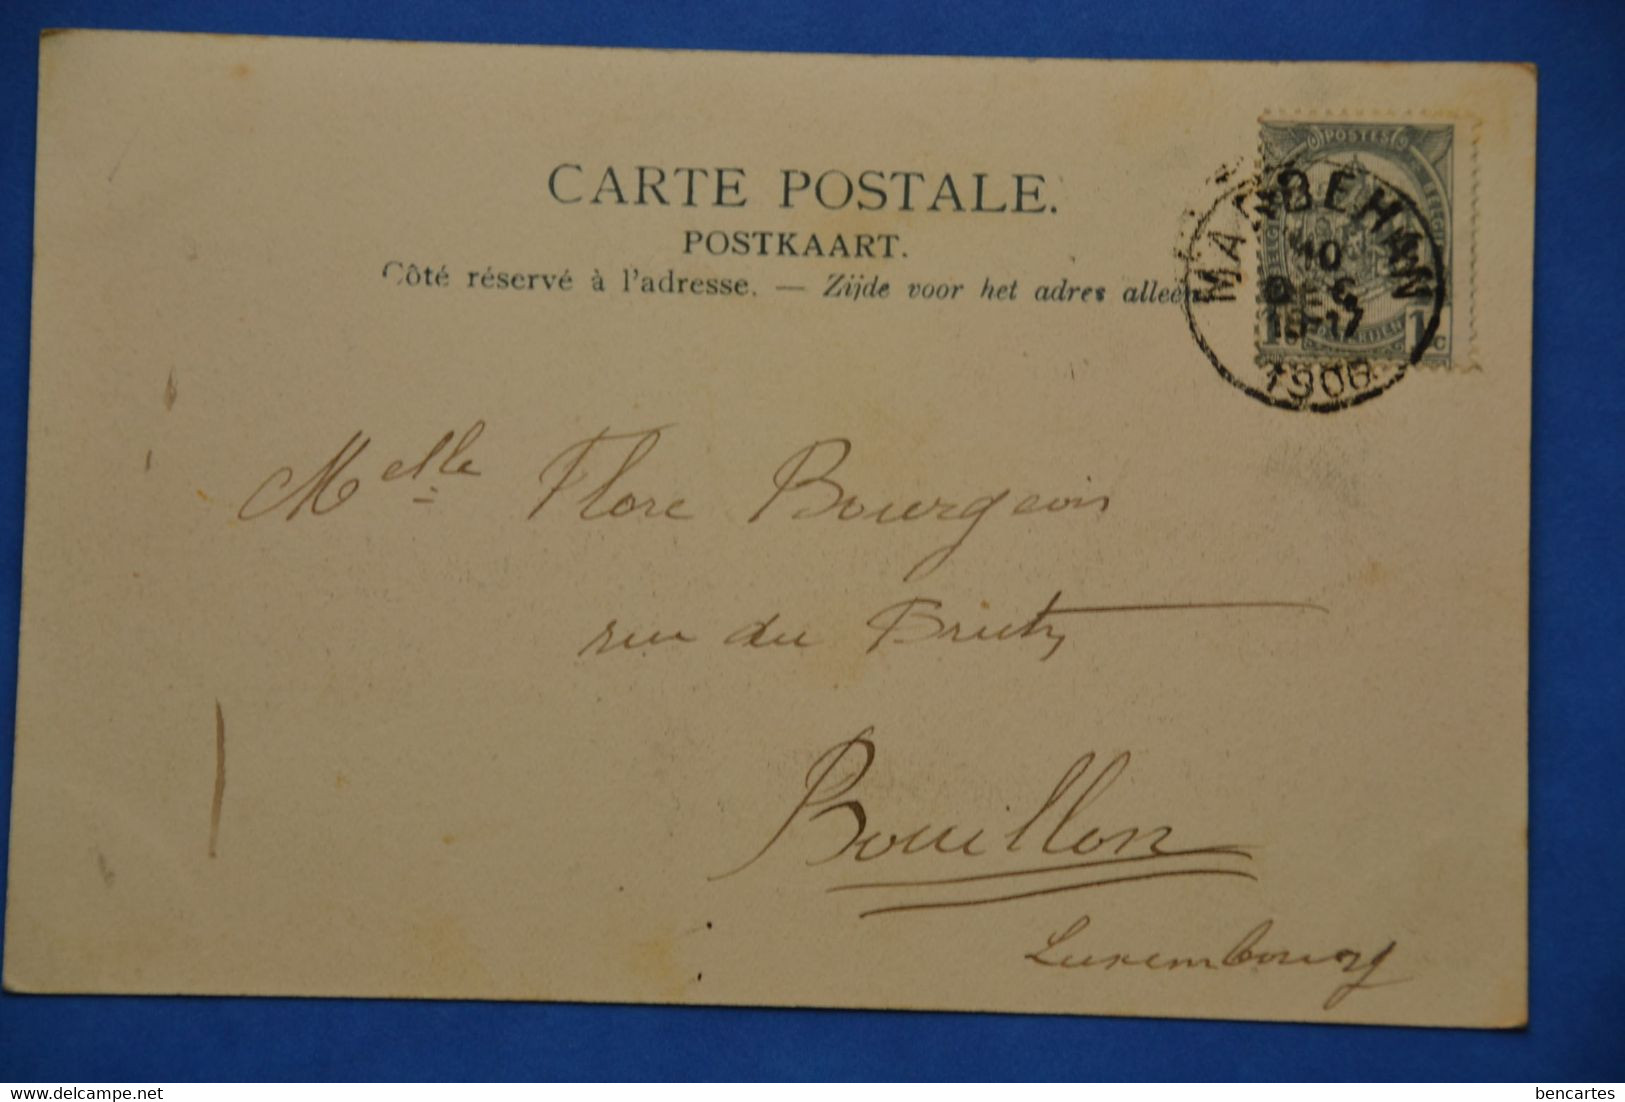 CARTE POSTALE.
POSTKAART.
Côté réservé à l'adresse. — Zijde voor het adres alleen
POSTES
MARBEHAN
10
DEC
16-17
1908
1 c
Melle Flore Bourgeois
rue du Brutz
Bouillon
Luxembourg
delcampe.net
bencartes